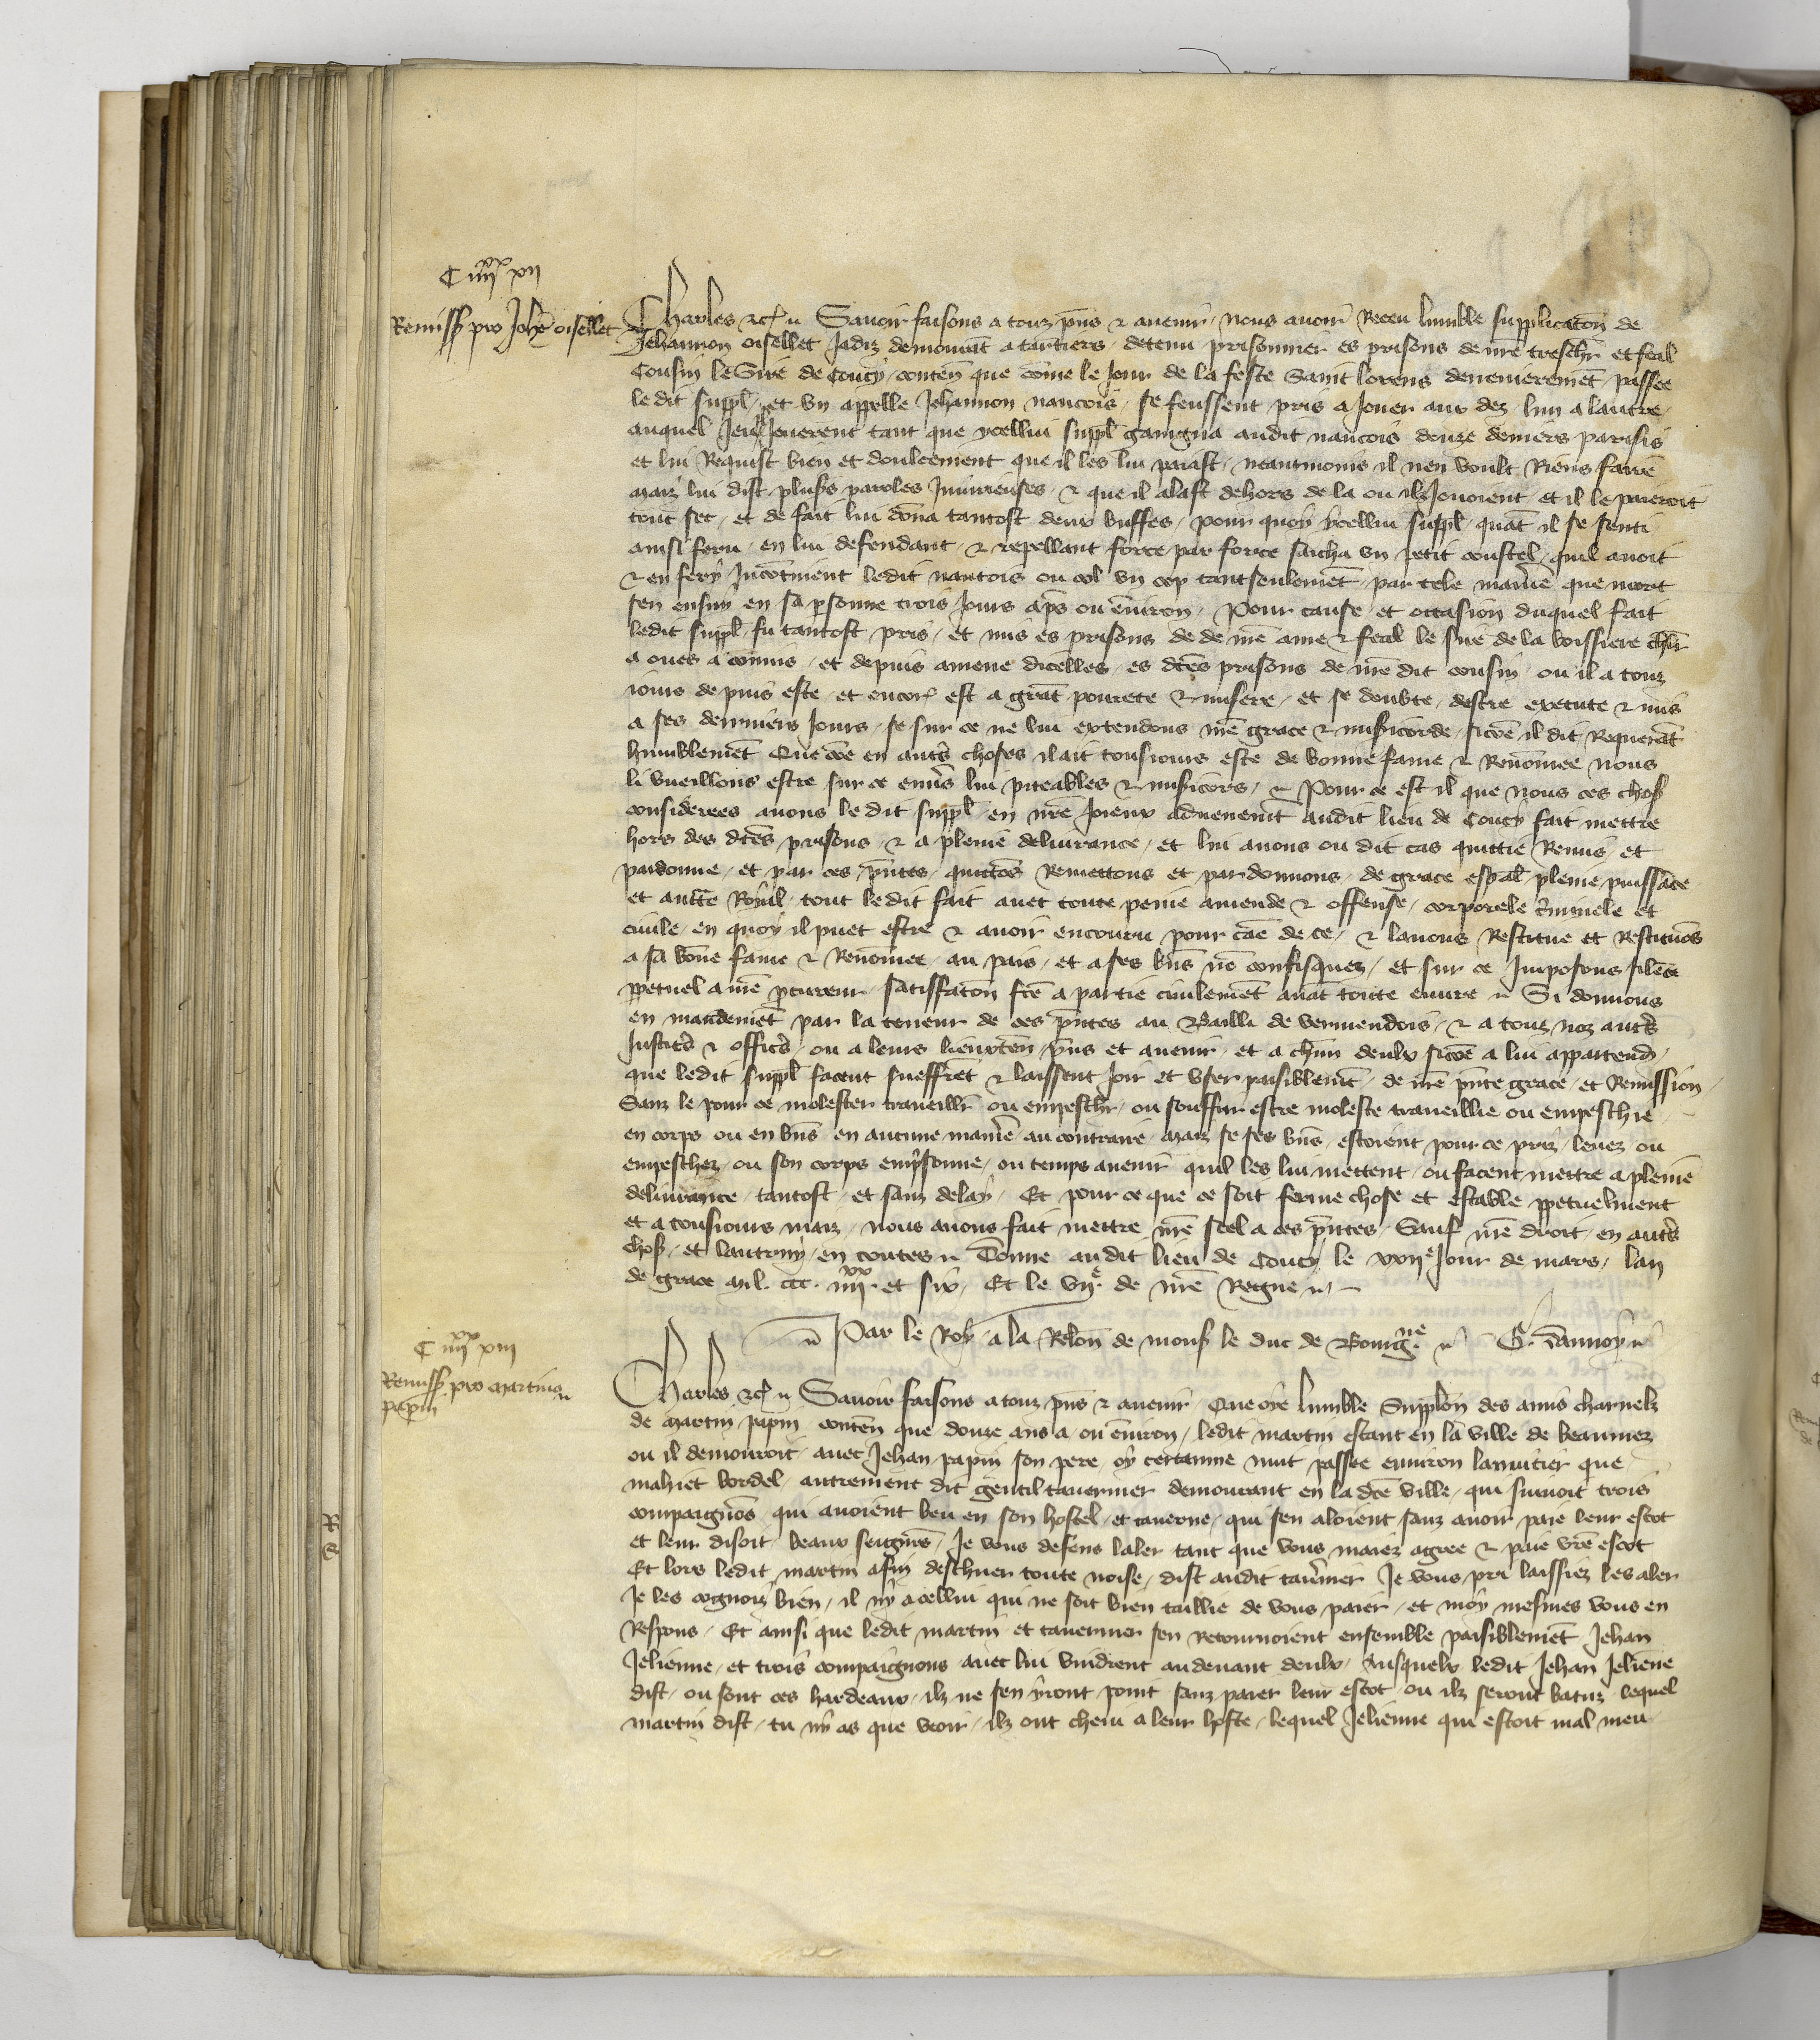 C iiii xx xii
Remiss pro Johe oisellet
Charles etc. Savoir faisons a touz pns et avenir nous avoir Receu lumble supplicaton de
Jehannon oisellet Jadiz demourat a tartiers detenu prisonnier es prisons de nre treschr et feal
Cousin le Sire de Coucy conten que come le Jour de la feste Saint lorens derrenierement passee
le dit suppl et un appelle Jehannon nancois se feussent pris a Jouer aux dez lun a lautre
auquel Jeu Jouerent tant que ycellui suppl gaingna audit nancois douze deniers parisis
et lui Requist bien et doulcement que il les lui paiast neantmoins il nen voult Riens faire
maiz lui dist pluss paroles Iniurieuses et que il alast dehors de la ou ilz Jouoient et il le paieroit
tout sec et de fait lui dona tantost deux buffes pour quoy ycellui suppl quat il se senti
ainsi feru en lui defendant et repellant force par force sacha un petit coustel quil avoit
et en fery Incotinent ledit nancois ou col un cop tant seulemet par tele manie que mort
sen ensuy en sa psonne trois Jours aps ou environ Pour cause et occasion duquel fait
ledit suppl fu tantost pris et mis es prisons de de nre ame et feal le sire de la boissiere chlr
a ce commis et depuis amene dicelles es dces prisons de nre dit cousin ou il a touz
iours depuis este et encor est a grat povrete et misere et se doubte destre execute et mis
a ses derniers Jours se sur ce ne lui extendons nre grace et misicorde sicoe il dit Requerat
humblemet Que coe en auts choses il ait tousiours este de bonne fame et Renomee nous
li vueillons estre sur ce envs lui piteables et misicors et Pour ce est il que nous ces chos
considerees avons le dit suppl en nre Joieux advenemt audit lieu de Coucy fait mettre
hors des dces prisons et a pleine delivrance et lui avons ou dit cas quittie Remis et
pardonne et par ces pntes quittos Remettons et pardonnons de grace espal pleine puissace
et aucte Royal tout le dit fait avec toute peine amende et offense corporele criminele et
civile en quoy il puet estre et avoir encouru pour cae de ce et lavons Restitue et Restituos
a sa bone fame et Renomee au pais et a ses bns no confisquez et sur ce Imposons silece
ppetuel a nre pcureur satisfacon fce a partie civilemet avat toute euvre Si donnons
en mandemet par la teneur de ces pntes au Bailli de vermendois et a touz noz auts
Justics et offics ou a leurs lieuxten pns et avenir et a chun deulx sicoe a lui appartend
que ledit suppl facent sueffret et laissent Joir et user paisiblemet de nre pnte grace et Remission
Sanz le pour ce molester traveillr ou empeschr ou souffrir estre moleste traveillie ou empeschie
en corps ou en bns en aucune manie au contraire maiz se ses bns estoient pour ce priz levez ou
empeschez ou son corps emprisonne ou temps avenir quil les lui mettent ou facent mettre a pleine
delivrance tantost et sanz delay Et pour ce que ce soit ferme chose et estable ppetuelment
et a tousiours maiz nous avons fait mettre nre seel a ces pntes Sauf nre droit en auts
chos et lautruy en toutes Donne audit lieu de Coucy le xxiie Jour de mars lan
de grace mil ccc iiii xx et six Et le viie de nre Regne
Par le Roy a la Relon de mons le duc de Bourgne G. Dannoy
C iiii xx xiii
Remiss pro martino
papin
Charles etc. Savoir faisons a touz pns et avenir Que oye lumble Supplon des amis charnelz
de martin papin conten que douze ans a ou environ ledit martin estant en la ville de beaumez
ou il demouroit avec Jehan papin son pere oy certaine nuit passee environ lanuitier que
mahiet bordel autrement dit gentil tavernier demourant en la dce ville qui suivoit trois
compaignos qui avoient beu en son hostel et taverne qui sen aloient sanz avoir paie leur escot
et leur disoit beaux seigns Je vous defens laler tant que vous maiez agree et paie vre escot
Et lors ledit martin afin deschiver toute noise dist audit tavnier Je vous pri laissiez les aler
Je les cognoiz bien il ny a cellui qui ne soit bien taillie de vous paier et moy mesmes vous en
Respons Et ainsi que ledit martin et tavernier sen Retournoient ensemble paisiblemet Jehan
Jelienne et trois compaignons avec lui vindrent au devant deulx Ausquelx ledit Jehan Jeliene
dist ou sont ces hardeaux ilz ne sen yront point sanz paier leur escot ou ilz seront batuz lequel
martin dist tu ny as que veoir ilz ont chevi a leur hoste lequel Jelienne qui estoit mal meu